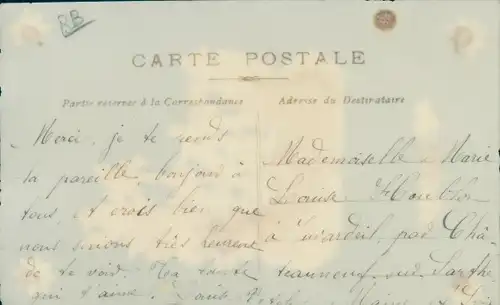 RB
CARTE POSTALE
Partie réservée à la Correspondance
Adresse du Destinataire
Merci, je te rends
ta pareille, bonjour à
tous, et crois bien que
nous serions très heureux
de te voir. Ta tante
qui t'aime. Louise
Mademoiselle Marie
Louise
à Juvardeil, par Châ-
teauneuf sur Sarthe
Maine &